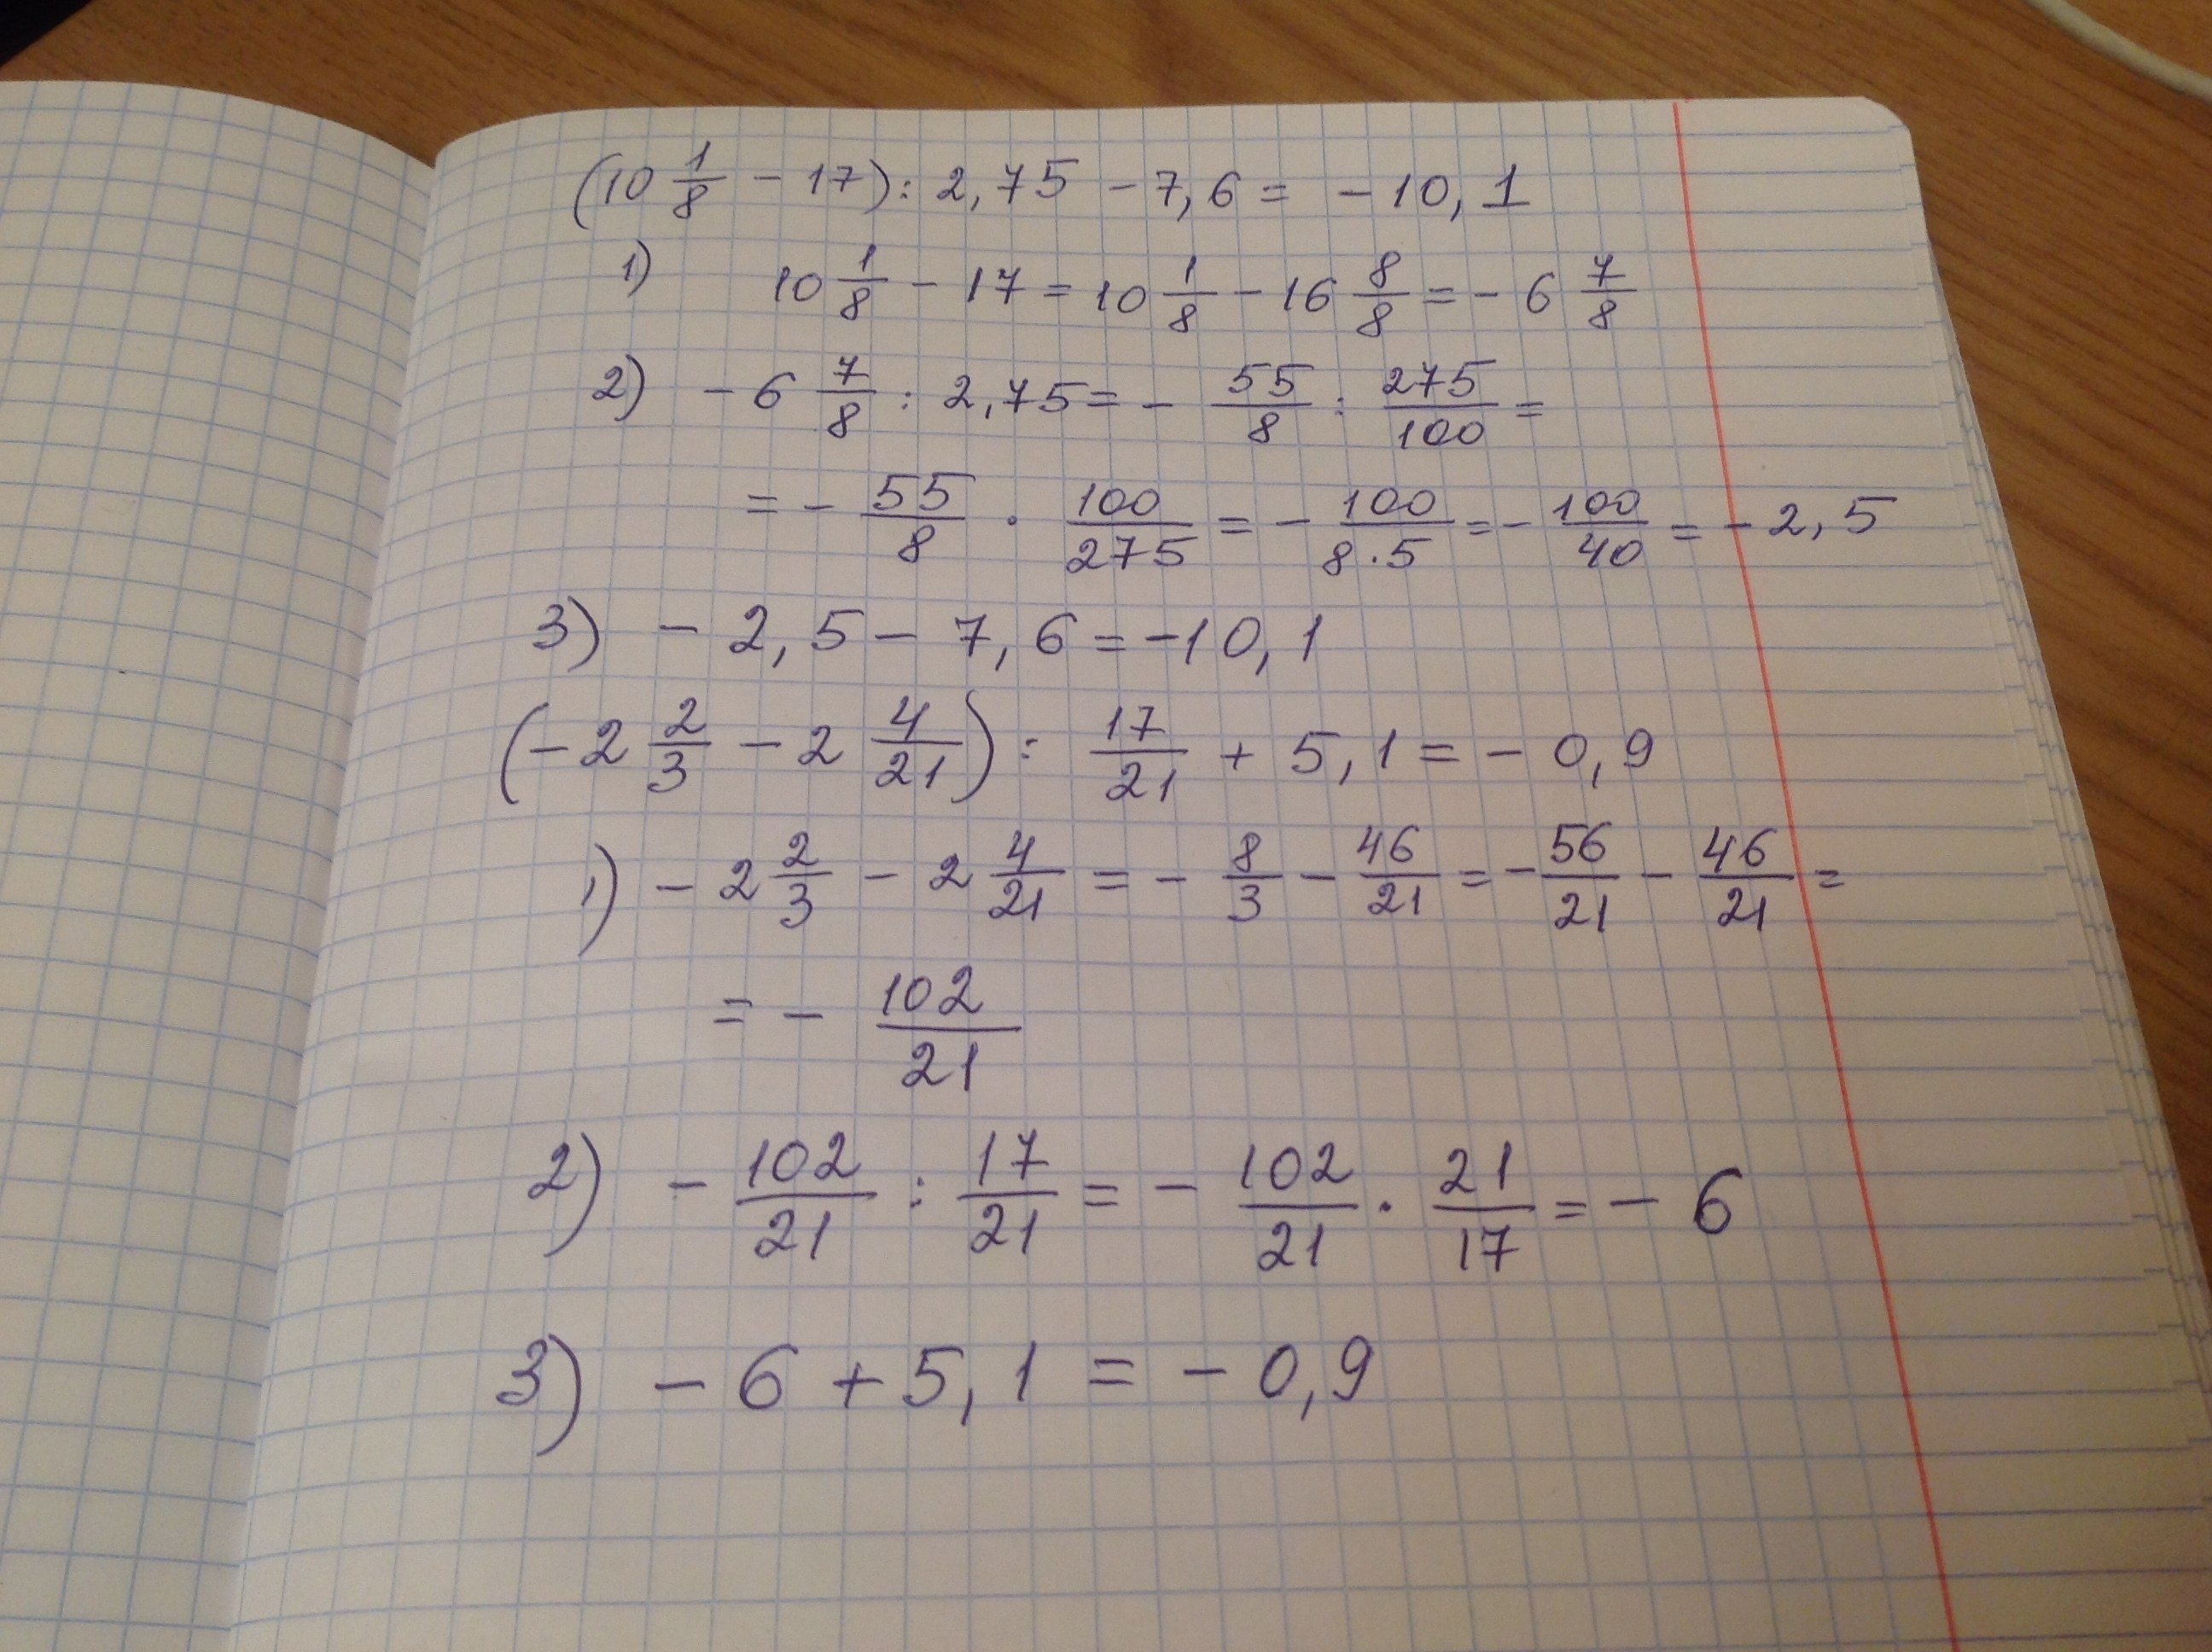 (10 1/8 - 17) : 2,75 - 7,6 = - 10,1
1) 10 1/8 - 17 = 10 1/8 - 16 8/8 = - 6 7/8
2) - 6 7/8 : 2,75 = - 55/8 : 275/100 =
= - 55/8 · 100/275 = - 100/8·5 = - 100/40 = - 2,5
3) - 2,5 - 7,6 = -10,1
(- 2 2/3 - 2 4/21) : 17/21 + 5,1 = - 0,9
1) - 2 2/3 - 2 4/21 = - 8/3 - 46/21 = - 56/21 - 46/21 =
= - 102/21
2) - 102/21 : 17/21 = - 102/21 · 21/17 = - 6
3) - 6 + 5,1 = - 0,9